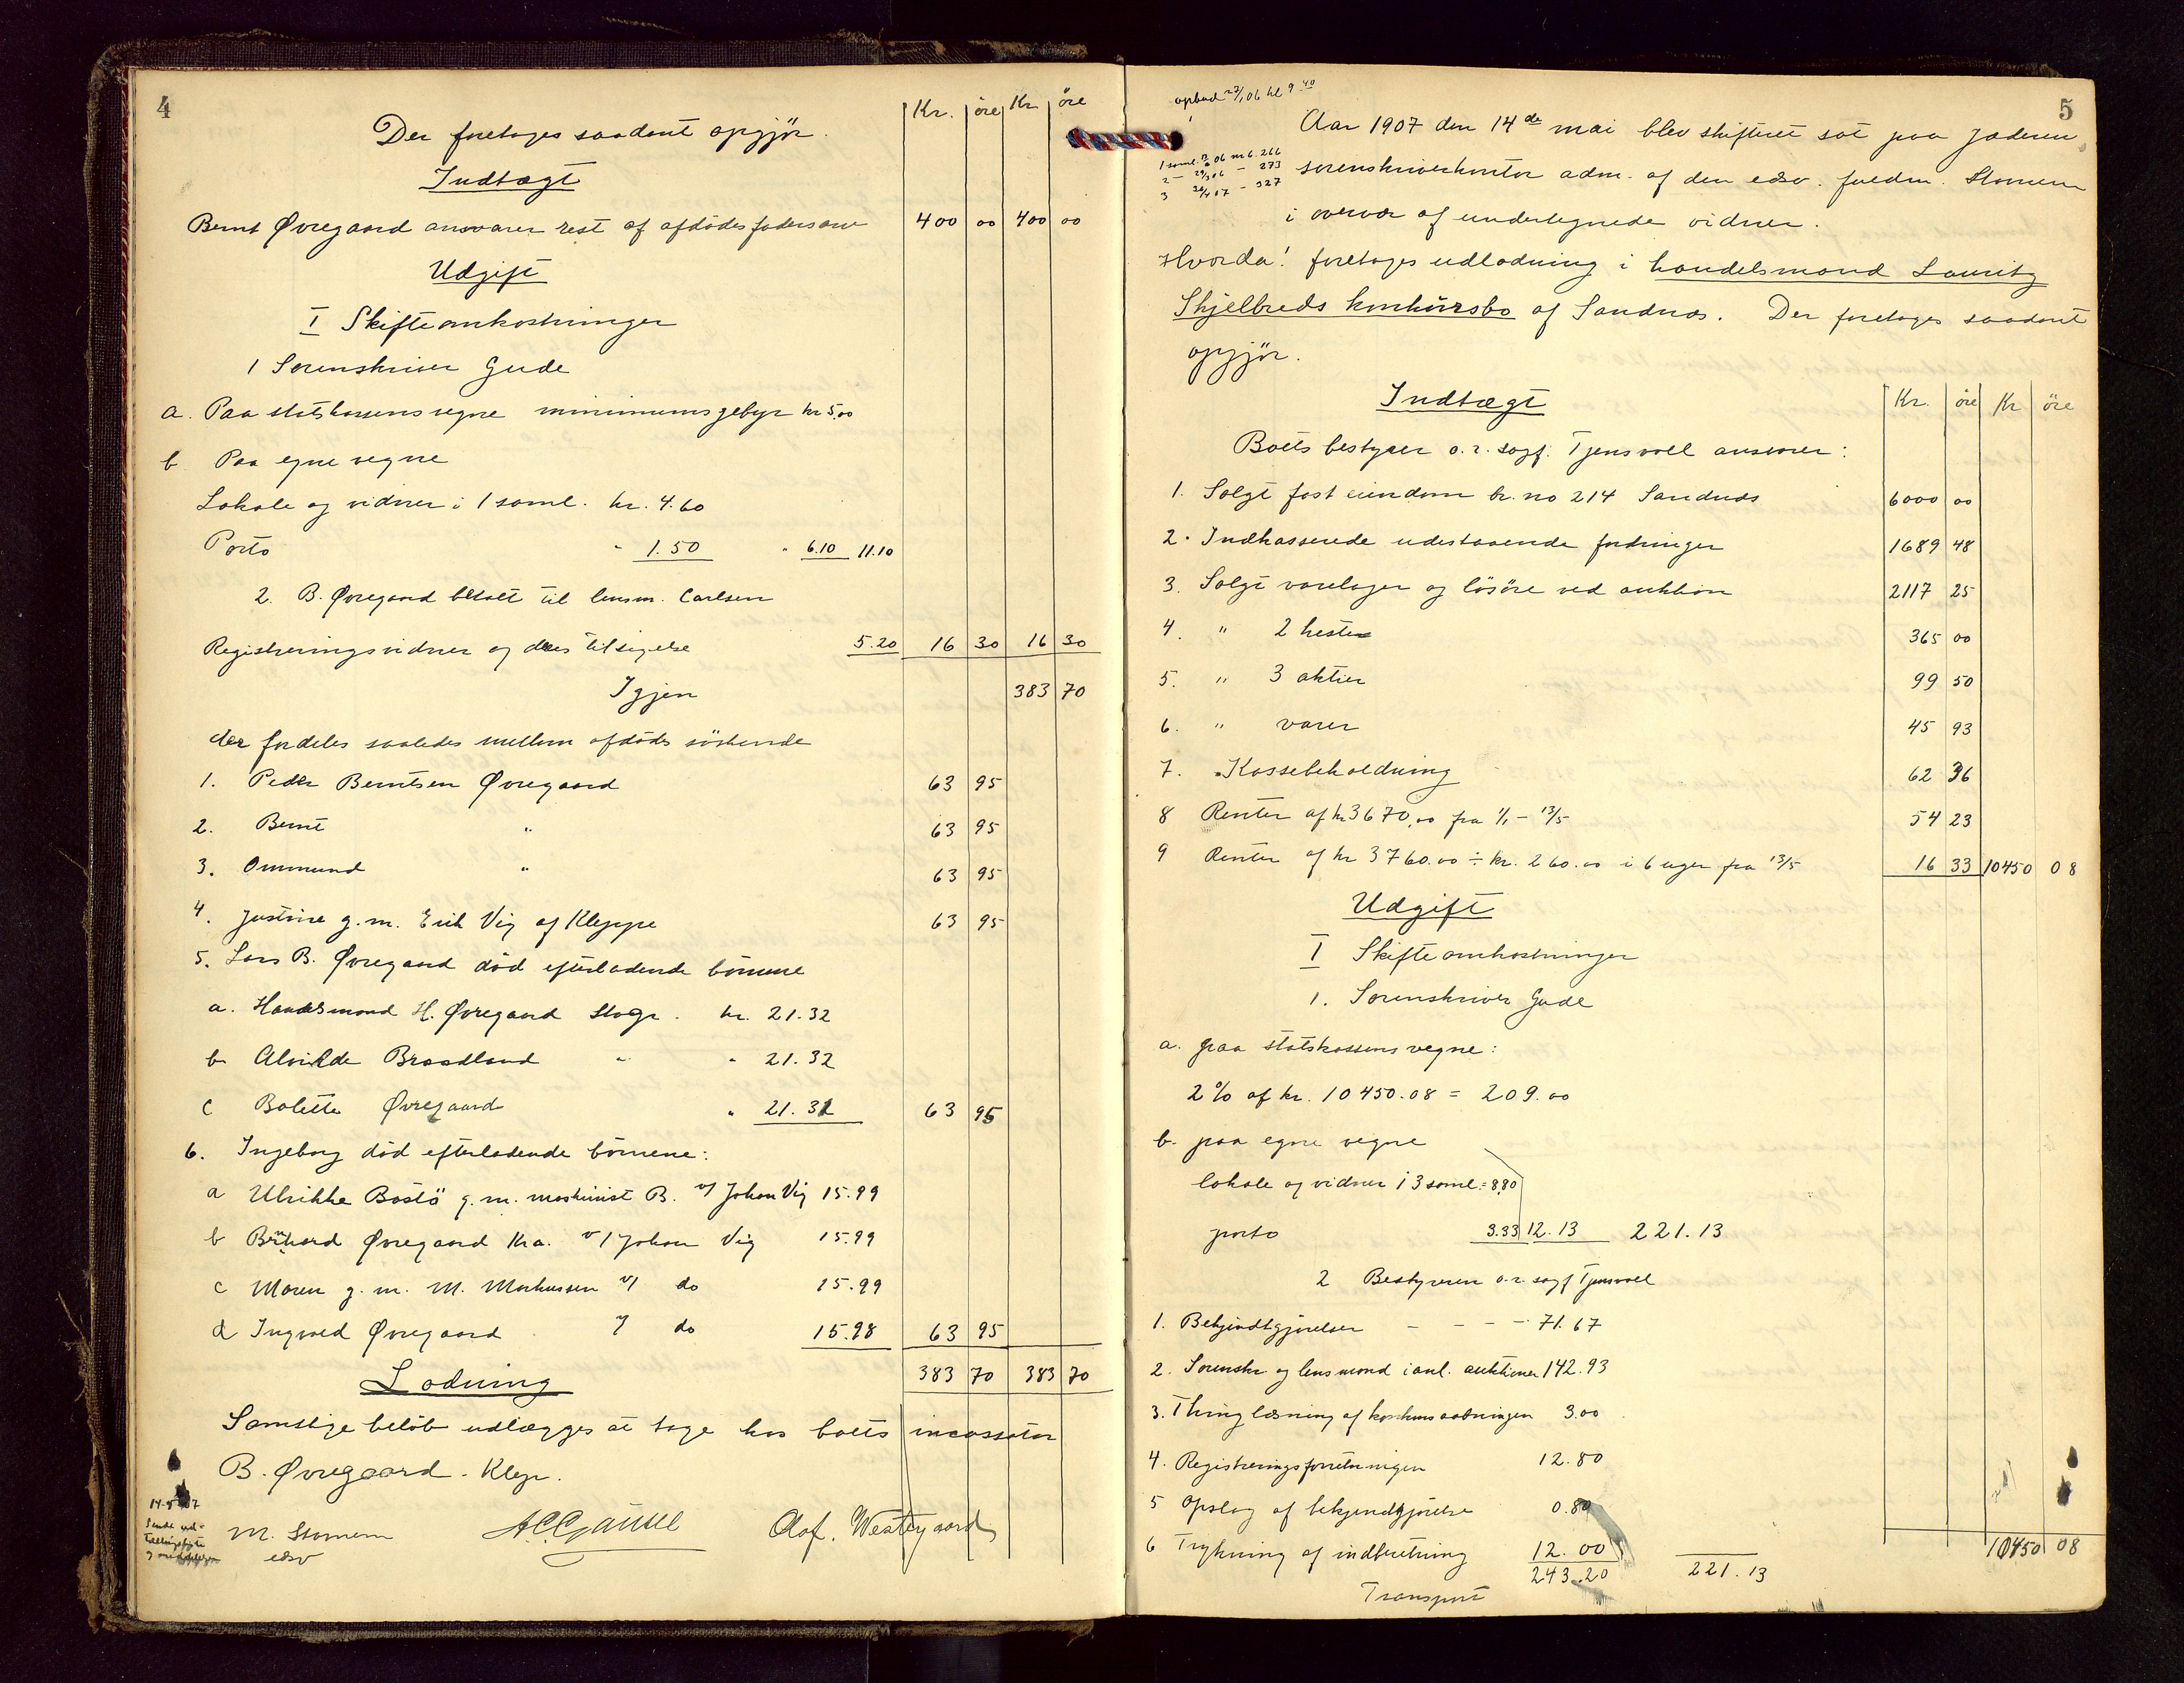 4
Kr. øre Kr øre
Der foretages saadant opgjør.
Indtægt
Bernt Øvregaard ansvarer rest af afdødes fadersarv 400 00 400 00
Udgift
I Skifteomkostninger
1 Sorenskriver Gude
a. Paa statskassens vegne minimumsgebyr kr 5,00
b Paa egne vegne
Lokale og vidner i 1 saml. kr. 4.60
Porto " 1.50 " 6.10 11.10
2. B. Øvregaard betalt til lensm. Carlsen
Registreringsvidner og deres tilsigelse 5.20 16 30 16 30
Igjen 383 70
der fordeles saaledes mellem afdødes søskende
1. Peder Berntsen Øvregaard 63 95
2. Bernt " 63 95
3. Ommund " 63 95
4. Justine g.m. Erik Vig af Kleppe 63 95
5. Lars B. Øvregaard død efterladende børnene
a. Handelsmand H. Øvregaard Stvgr. kr. 21.32
b Alvilde Braadland " " 21.32
c Bolette Øvregaard " 21.31 63 95
6. Ingeborg død efterladende børnene:
a Ulrikke Bastø g.m. maskinist B. v/ Johan Vig 15.99
b Bernhard Øvregaard Kra. v/ Johan Vig 15.99
c Maren g.m. M. Markussen v/ do 15.99
d Ingvald Øvregaard v/ do 15.98 63 95
383 70 383 70
Lodning
Samtlige beløb udlægges at tage hos boets incassator
B. Øvregaard. Klep.
14-5-07
Sendt ud-
M. Stornem A.C. Gausel Olof. Westergaard
edsv
5
opbud 23/1 06 kl 9 40
1 saml. 06 nr 6. 266
2 - 29/3 06 - 273
3 26/4 07 - 327
Aar 1907 den 14de mai blev skifteret sat paa Jæderen
sorenskriverkontor adm. af den edsv. fuldm. Stornem
i overvær af undertegnede vidner.
Hvorda! foretages udlodning i handelsmand Lauritz
Skjelbreds konkursbo af Sandnæs. Der foretages saadant
opgjør.
Indtægt Kr. øre Kr øre
Boets bestyrer o.r. sagf. Tjensvoll ansvarer:
1. Solgt fast eiendom br. no 214 Sandnæs 6000 00
2. Indkasserede udestaaende fordringer 1689 48
3. Solgt varelager og løsøre ved auktion 2117 25
4. " 2 heste 365 00
5. " 3 aktier 99 50
6. " varer 45 93
7. Kassebeholdning 62 36
8 Renter af kr 3670,00 fra 1/1 - 13/5 54 23
9 Renter af kr 3760.00 ÷ kr. 260.00 i 6 uger fra 13/5 16 33 10450 08
Udgift
I Skifteomkostninger
1. Sorenskriver Gude
a. paa statskassens vegne:
2 % af kr. 10450.08 = 209.00
b. paa egne vegne
lokale og vidner i 3 saml. = 8.80
porto 3.33 12.13 221.13
2 Bestyreren o.r. sagf Tjensvoll
1. Bekjendtgjørelser - - - - 71.67
2. Sorenskr og lensmand i anl. auktioner 142.93
3. Thinglæsning af konkursaabningen 3.00
4. Registreringsforretningen 12.80
5 Opslag af bekjendtgjørelse 0.80
6 Trykning af indberetning 12.00
243.20 221.13 10450 08
Transport